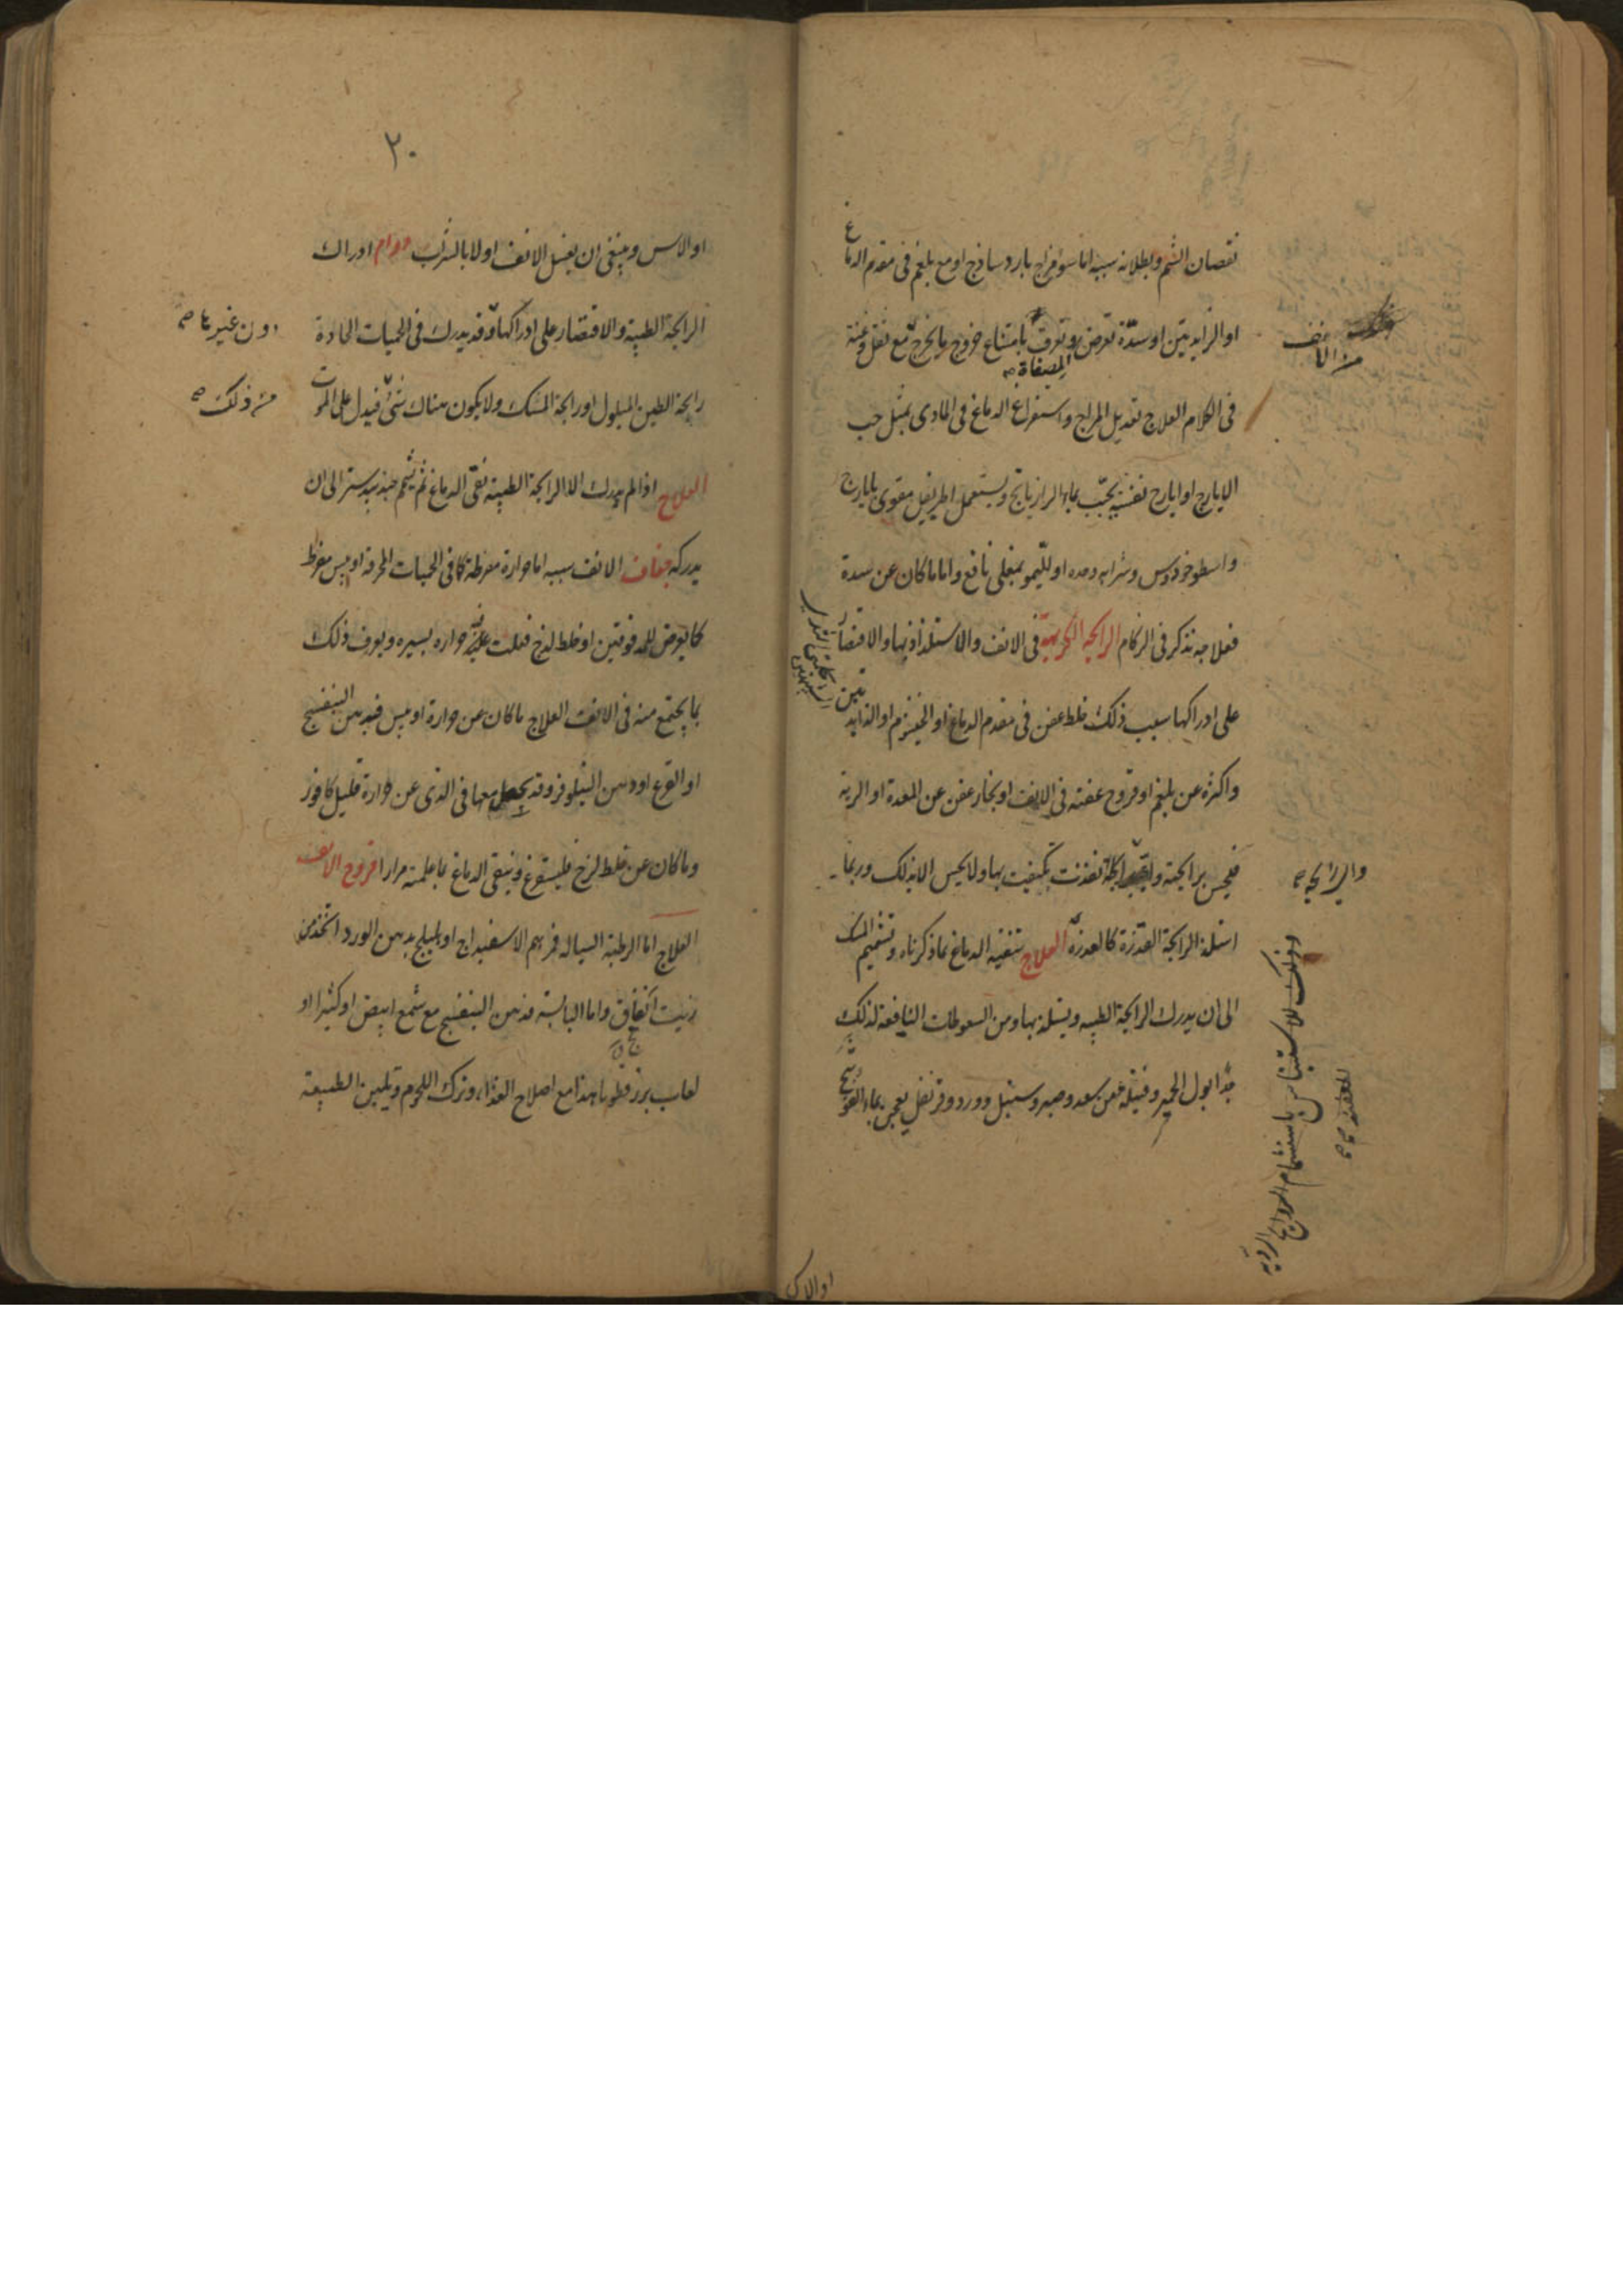 نقصان الشم وبطلانه سببه اما سوء مزاج بارد ساذج او مع بلغم فى مقدم الدماغ
او الزايدتين او سدة تعرض وتعرف بامتناع خروج ما يخرج مع ثقل وغنة
المصفاة صح
من الانف
فى الكلام العلاج تعديل المزاج واستفراغ الدماغ فى المادى بمثل حب
الايارج او ايارج نفسه يحبب بماء الرازيانج ويستعمل اطريفل مقوى بايارج
واسطوخودوس وشرابه وحده او لليمو بمغلى نافع واما ما كان عن سدة
فعلاجه نذكر فى الزكام الرايحة الكريهة فى الانف والاستلذاذ بها والاقتصار
على ادراكها سبب ذلك خلط عفن فى مقدم الدماغ او الخيشوم او الزايدتين
الشبيهتين بحلمتى الثدى
واكثره عن بلغم او قروح عفنة فى الانف او بخار عفن عن المعدة او الرية
فيحس برايحته ولا يحس الا بذلك وربما
والرايحة صح
استلذ الرايحة القذرة كالعذرة العلاج تنقية الدماغ بما ذكرناه وتشميم المسك
الى ان يدرك الرايحة الطيبه ويستلذ بها ومن السعوطات النافعة لذلك
جدا بول الحمير وفتيلة من سعد وصبر وسنبل وورد وقرنفل يعجن بماء الفوتنج
وذلك للاستيناس باستشمام الروايح الردية
او الاس
٢٠
او الاس وينبغى ان يغسل الانف اولا بالشراب دوام ادراك
الرايحة الطيبة والاقتصار على ادراكها وقد يدرك فى الحميات الحادة
دون غيرها صح
رايحة الطين المبلول او رايحة المسك ولا يكون هناك شئ فيدل على الموت
من ذلك صح
العلاج اذا لم يدرك الا الرايحة الطيبة نقى الدماغ ثم يشم جندبيدستر الى ان
يدركه جفاف الانف سببه اما حرارة مفرطة كما فى الحميات المحرقة او يبس مفرط
كما يعرض للمدقوقين او خلط لزج فعلت فيه حراره يسيره ويعرف ذلك
بما يجتمع منه فى الانف العلاج ما كان عن حرارة او يبس فبدهن البنفسج
او القرع او دهن النيلوفر وقد يجعل معها فى الذى عن حرارة قليل كافور
وما كان عن خلط لزج فليستفرغ وينقى الدماغ بما علمته مرارا قروح الانف
العلاج اما الرطبة السياله فمرهم الاسفيداج او بدهن الورد اتخذ من
زيت انفاق واما اليابسة فدهن البنفسج مع شمع ابيض او كثيرا او
لعاب بزرقطونا هذا مع اصلاح الغذاء وترك اللحوم وتليين الطبيعة